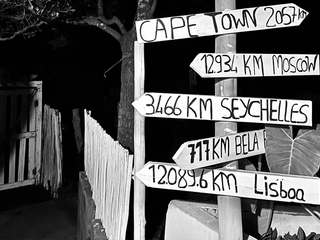 CAPE TOWN 2057km
12934 KM MOSCOW
3466 KM SEYCHELLES
717 KM BELA
12.089.6 KM Lisboa